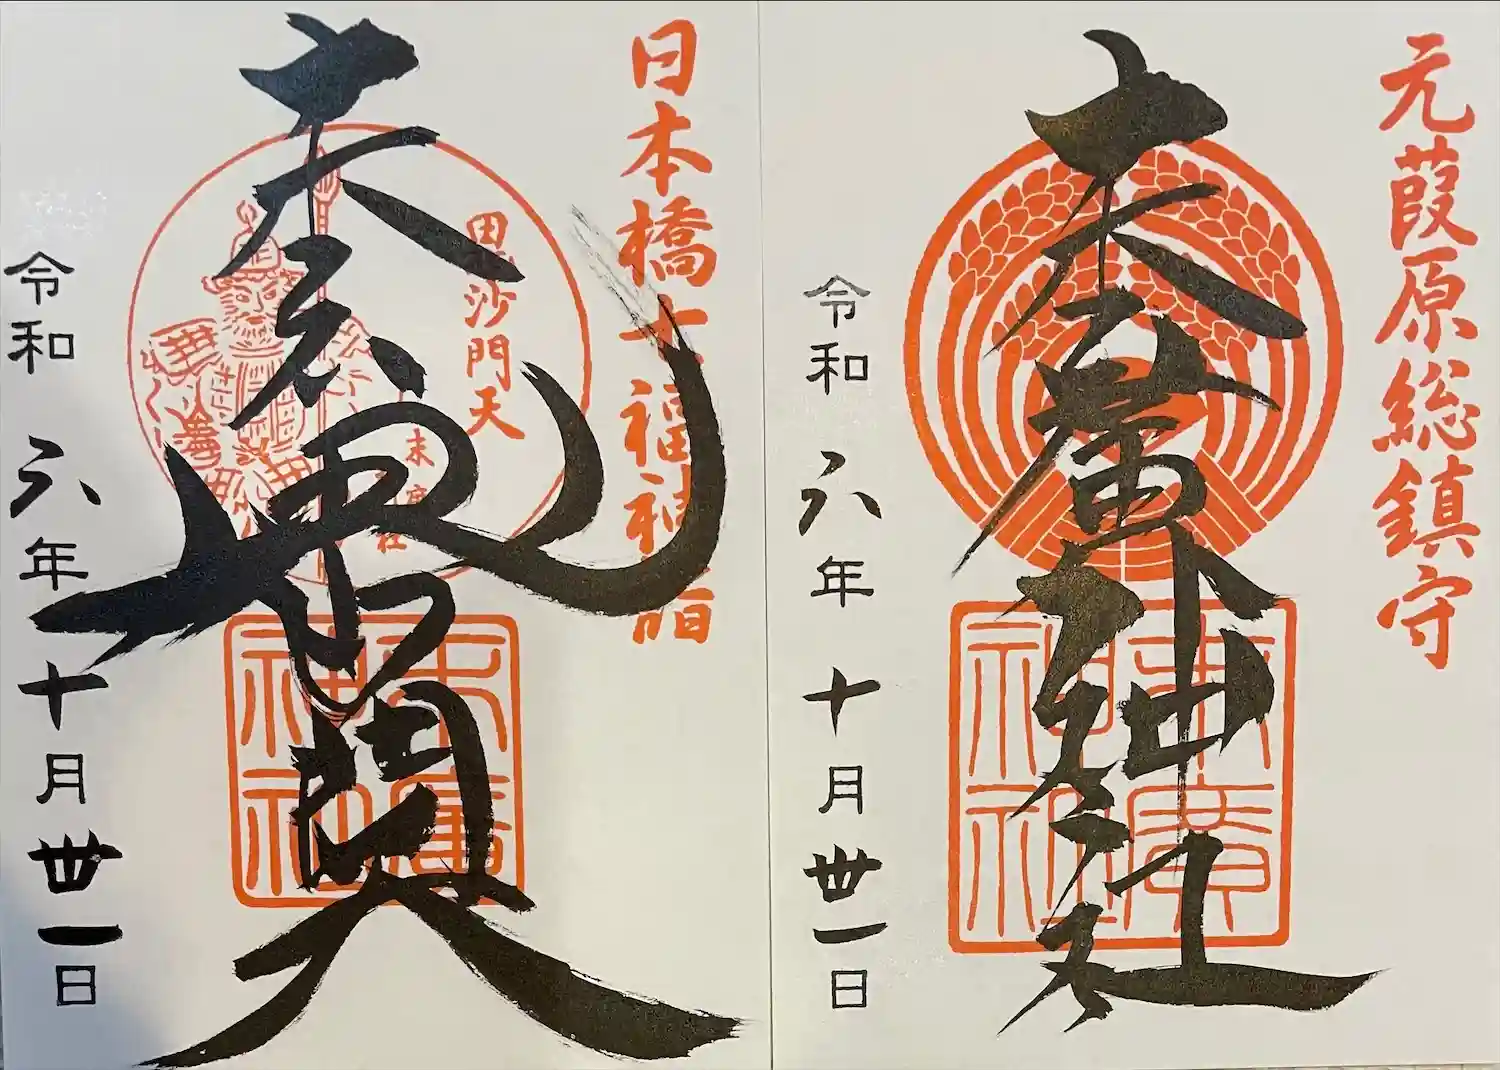 元葭原総鎮守
末廣神社
末廣
神社
令和六年十月丗一日
日本橋七福神詣
毘沙門天
末廣神社
毘沙門天
末廣
神社
令和六年十月丗一日